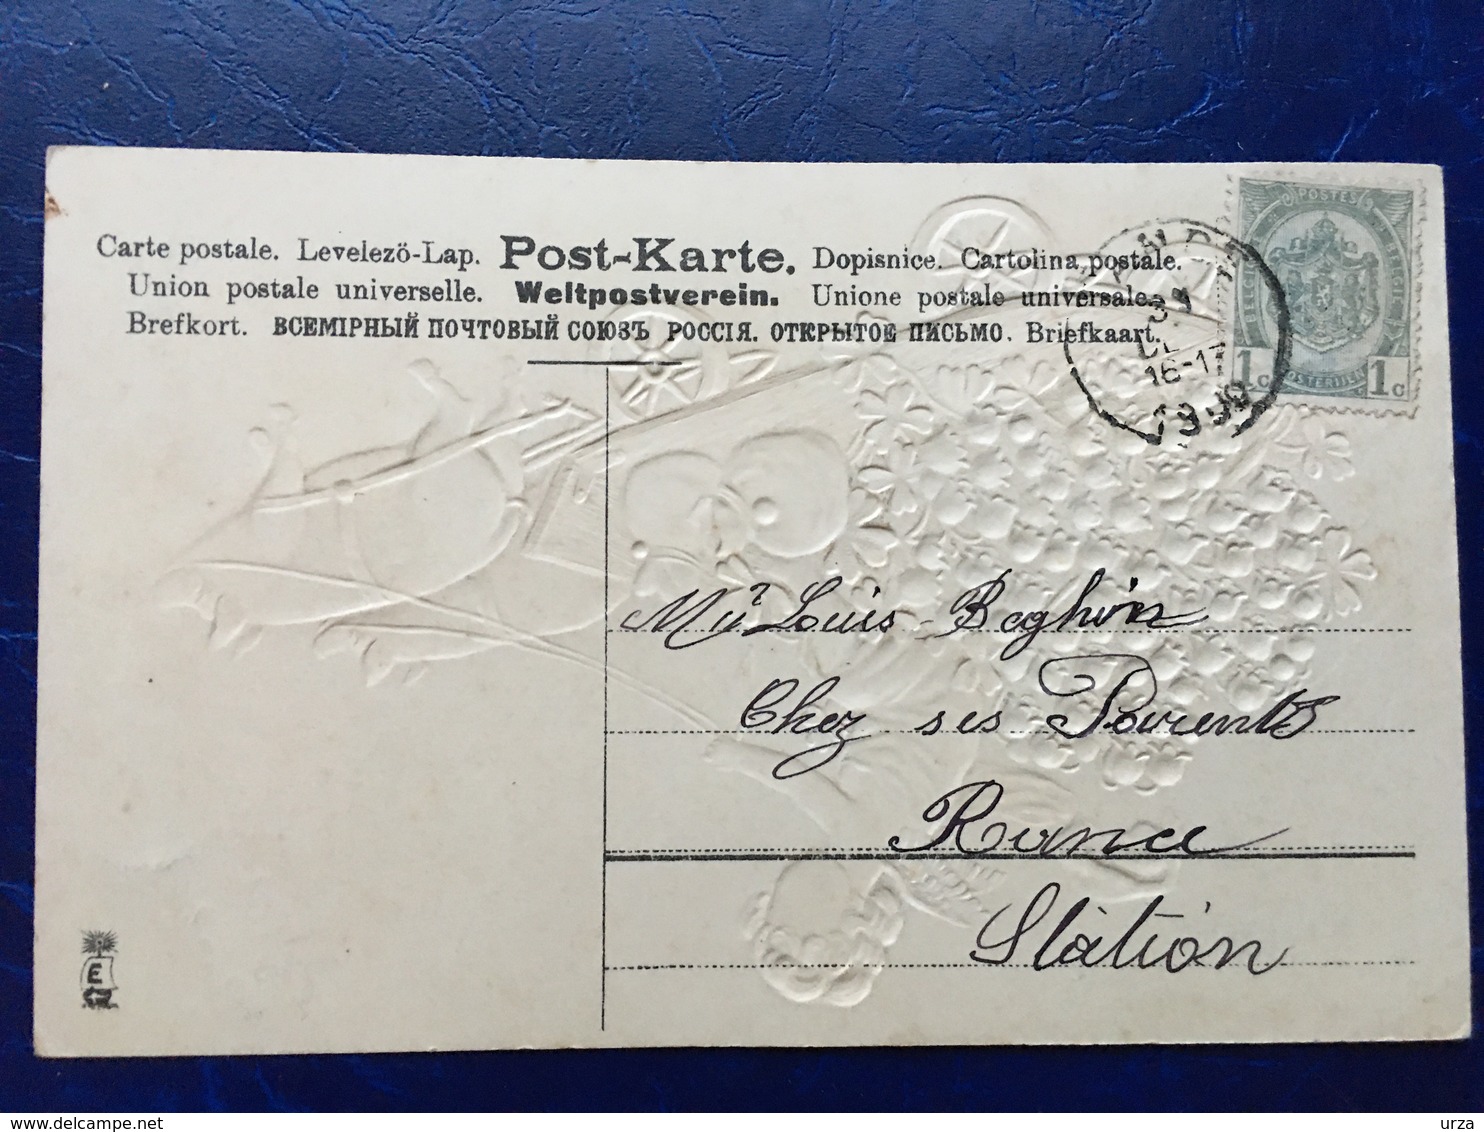 Carte postale. Levelezö-Lap. Post-Karte. Dopisnice. Cartolina postale.
Union postale universelle. Weltpostverein. Unione postale universale.
Brefkort. ВСЕМІРНЫЙ ПОЧТОВЫЙ СОЮЗЪ РОССІЯ. ОТКРЫТОЕ ПИСЬМО. Briefkaart.
POSTES
1c 1c
16-17
Louis Beghin
Chez ses Parents
Rance
Station
E
urza